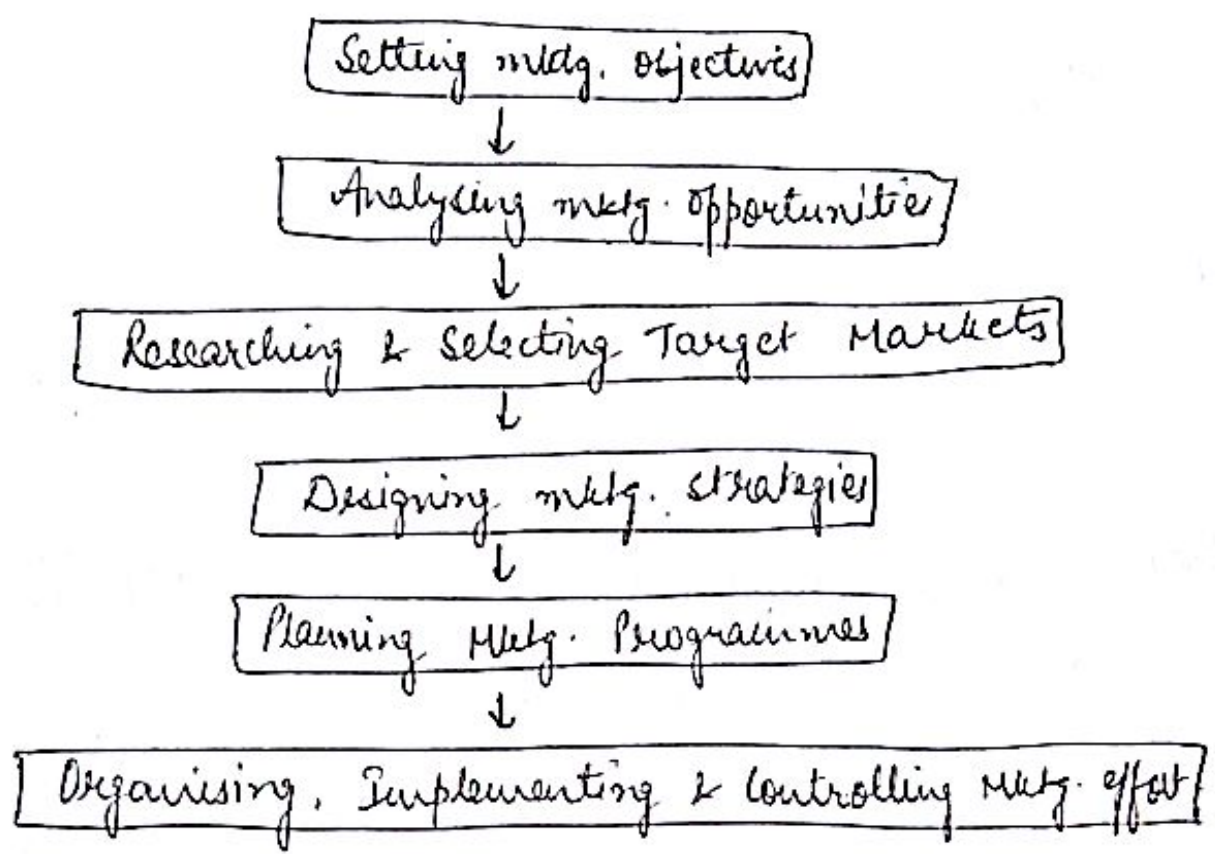 Setting mktg. objectives
Analysing mktg. opportunities
Researching & Selecting Target Markets
Designing mktg. strategies
Planning Mktg. Programmes
Organising, Implementing & Controlling Mktg. effort